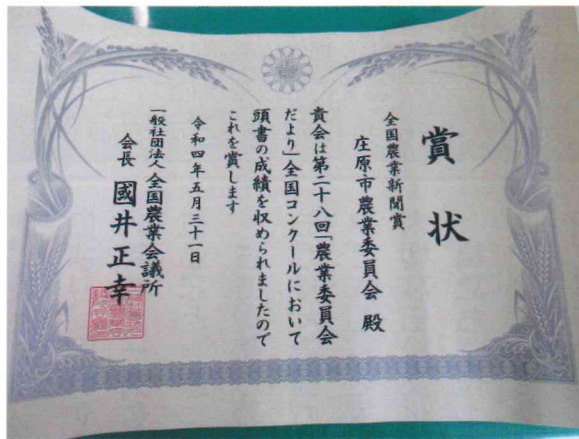 賞状
全国農業新聞賞
庄原市農業委員会 殿
貴会は第二十八回「農業委員会
だより」全国コンクールにおいて
頭書の成績を収められましたので
これを賞します
令和四年五月三十一日
一般社団法人 全国農業会議所
会長 國井正幸